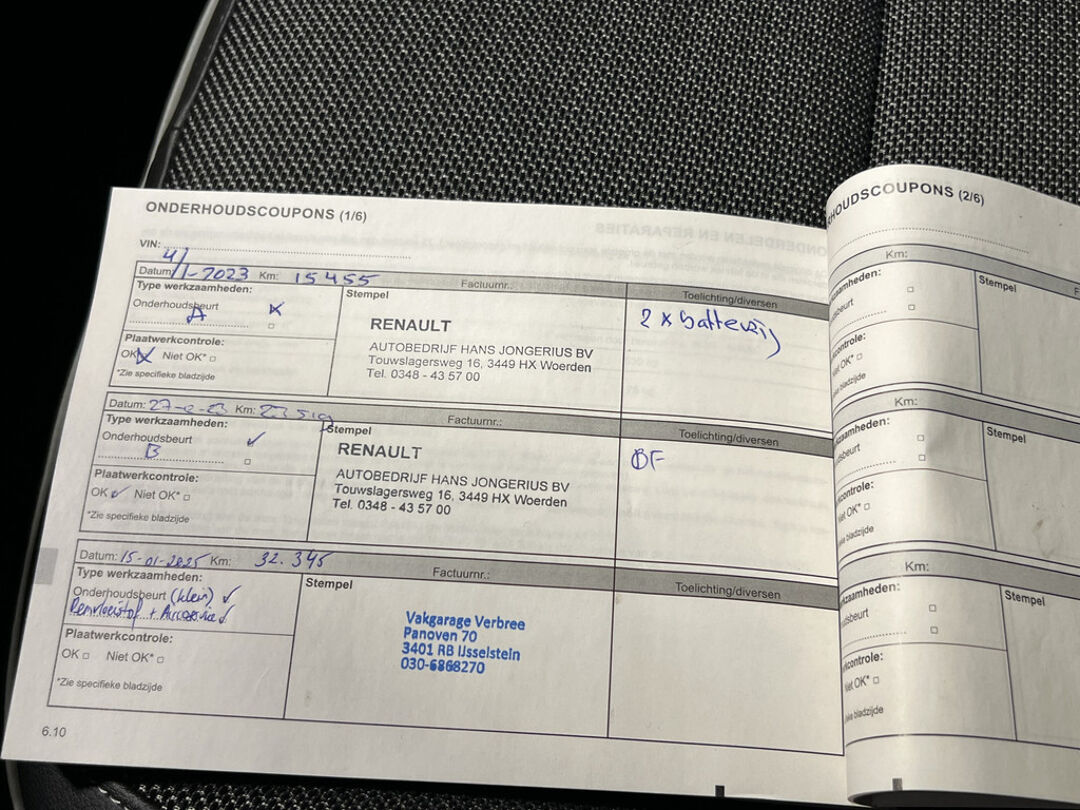 ONDERHOUDSCOUPONS (1/6)
VIN:
Datum: 4/1-2023 Km: 15455 Factuurnr.: Toelichting/diversen
Type werkzaamheden:
Onderhoudsbeurt
A
Plaatwerkcontrole:
OK Niet OK*
*Zie specifieke bladzijde
Stempel
RENAULT
AUTOBEDRIJF HANS JONGERIUS BV
Touwslagersweg 16, 3449 HX Woerden
Tel. 0348 - 43 57 00
2 x batterij
Datum: Km: Factuurnr.: Toelichting/diversen
Type werkzaamheden:
Onderhoudsbeurt
B
Plaatwerkcontrole:
OK Niet OK*
*Zie specifieke bladzijde
Stempel
RENAULT
AUTOBEDRIJF HANS JONGERIUS BV
Touwslagersweg 16, 3449 HX Woerden
Tel. 0348 - 43 57 00
BF
Datum: 15-01-2025 Km: 32.345 Factuurnr.: Toelichting/diversen
Type werkzaamheden:
Onderhoudsbeurt (klein)
Remvloeistof + Aircoservice
Plaatwerkcontrole:
OK Niet OK*
*Zie specifieke bladzijde
Stempel
Vakgarage Verbree
Panoven 70
3401 RB IJsselstein
030-6868270
6.10
RHOUDSCOUPONS (2/6)
Km:
zaamheden:
sbeurt
controle:
Niet OK*
bladzijde
Stempel
Km:
zaamheden:
sbeurt
controle:
Niet OK*
bladzijde
Stempel
Km:
zaamheden:
sbeurt
controle:
Niet OK*
bladzijde
Stempel